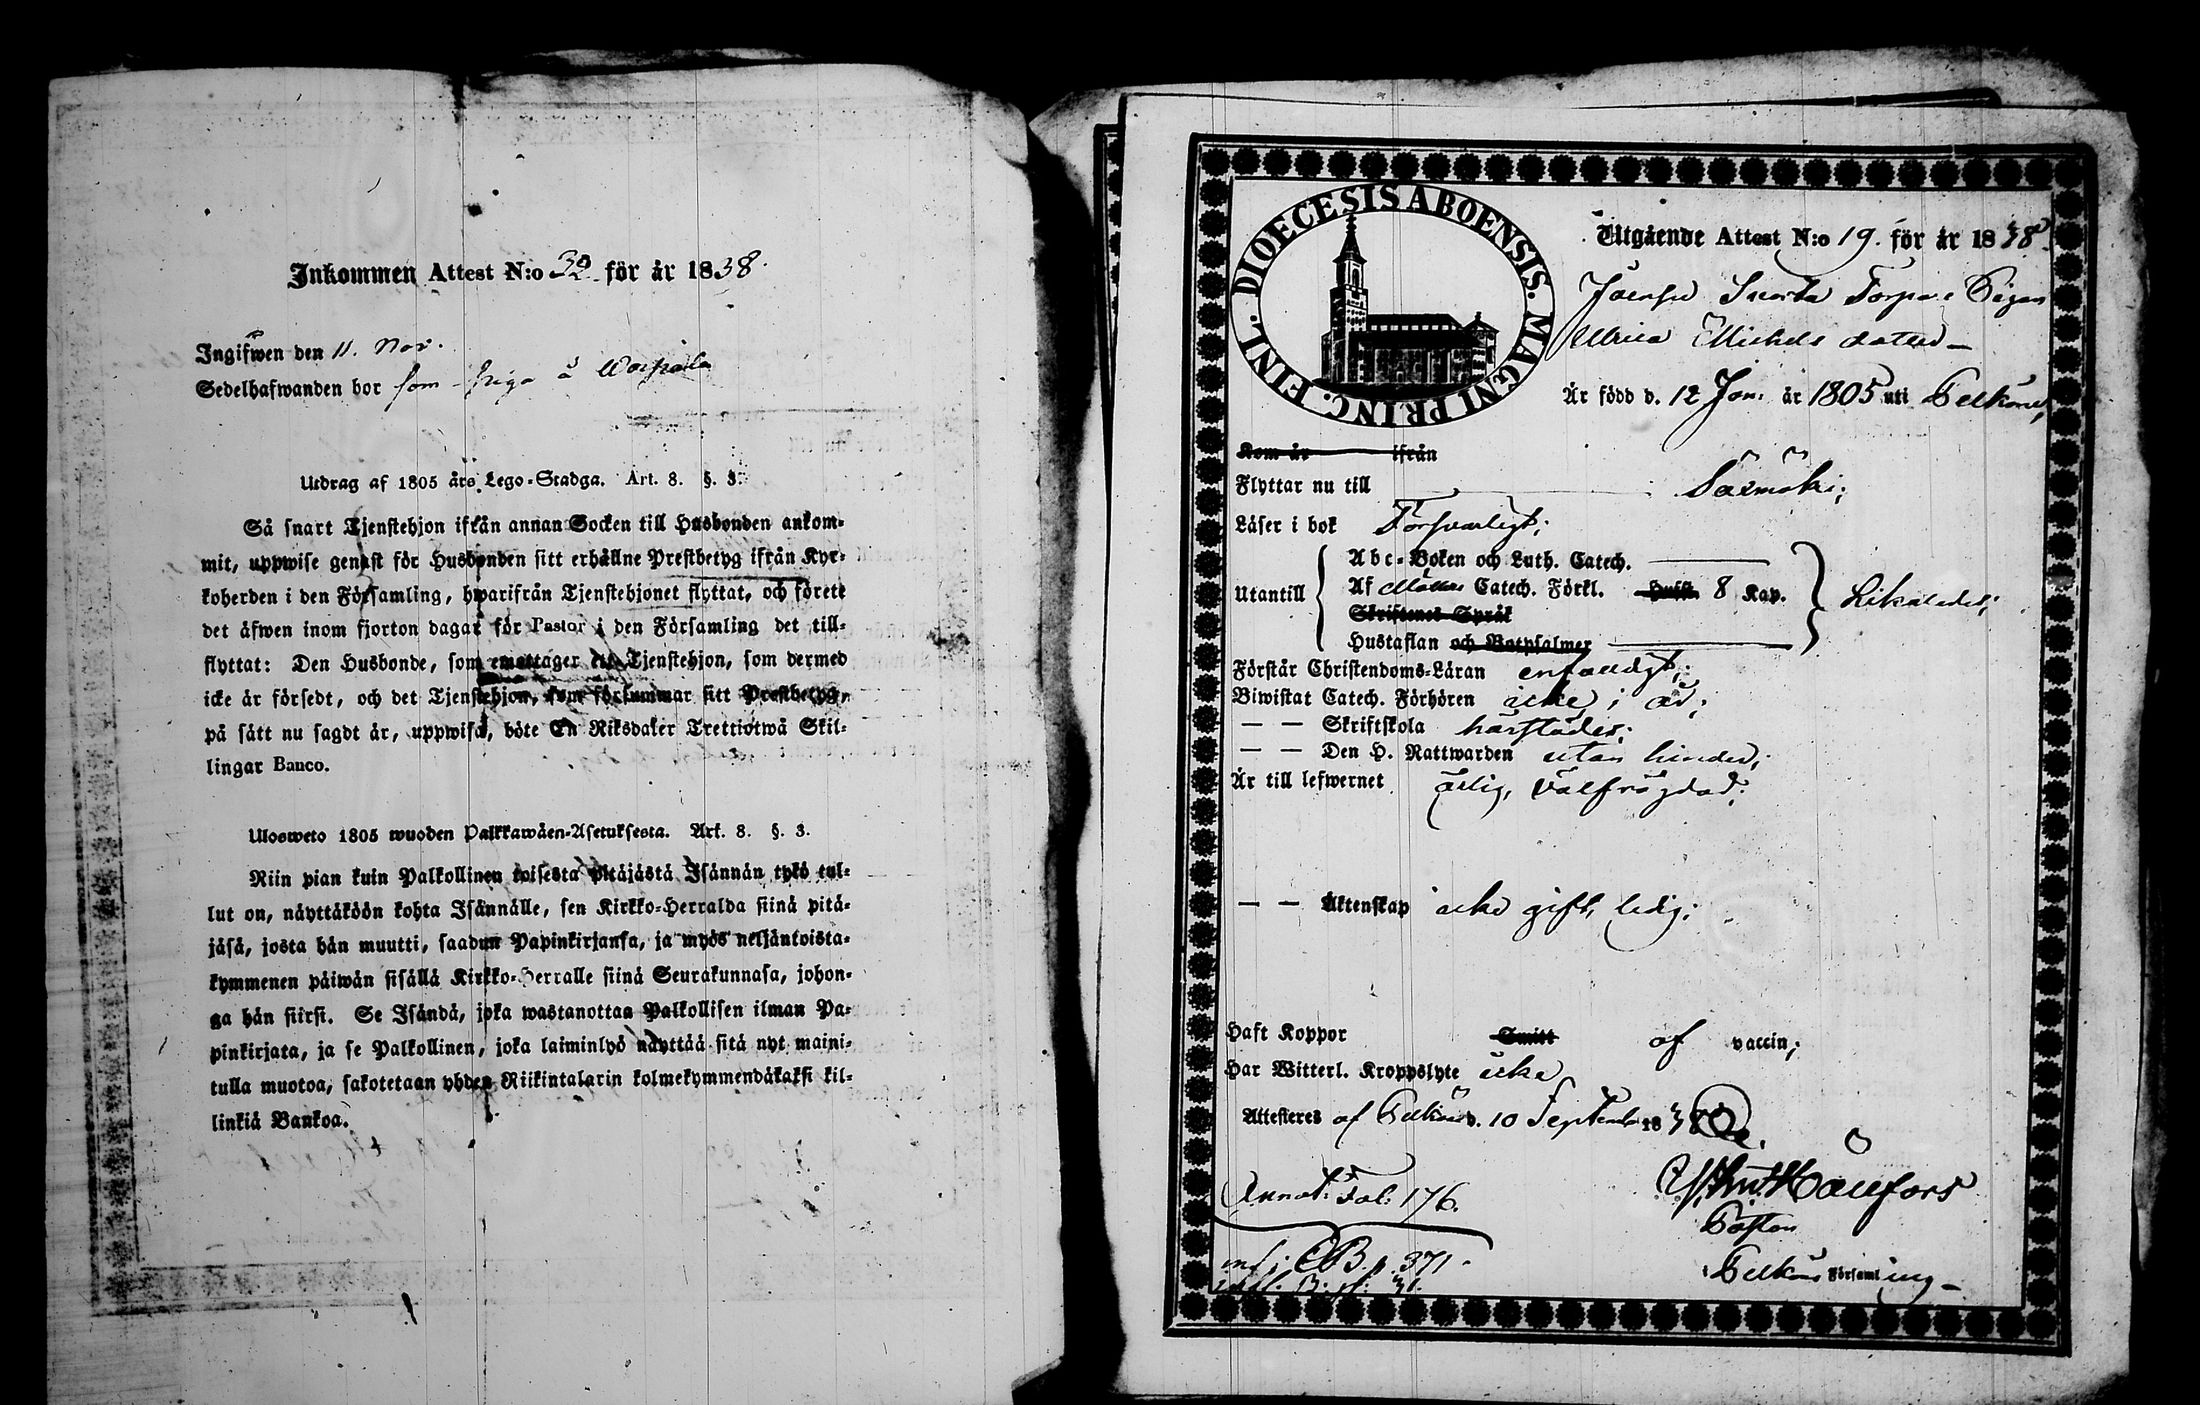 Inkommen Attest N:o 32. för år 1838.
Ingifwen den 11. Nov.
Sedelhafwanden bor som piga å
Utdrag af 1805 års Lego-Stadga. Art. 8. §. 3.
Så snart Tjenstehjon ifrån annan Socken till Husbonden ankom-
mit, uppwise genast för Husbonden sitt erhållne Prestbetyg ifrån Kyr-
koherden i den Församling, hwarifrån Tjenstehjonet flyttat, och förete
det äfwen inom fjorton dagar för Pastor i den Församling det till-
flyttat: Den Husbonde, som emottager ett Tjenstehjon, som dermed
icke är försedt, och det Tjenstehjon, som försummar sitt Prestbetyg,
på sätt nu sagdt är, uppwisa, böte En Riksdaler Trettiotwå Skil-
lingar Banco.
Ulosweto 1805 wuoden Palkkawäen-Asetuksesta. Art. 8. §. 3.
Niin pian kuin Palkollinen toisesta pitäjästä Isännän tykö tul-
lut on, näyttäköön kohta Isännälle, sen Kirkko-Herralda siinä pitä-
jäsä, josta hän muutti, saadun Papinkirjansa, ja myös neljäntoista-
kymmenen päiwän sisällä Kirkko-Herralle siinä Seurakunnasa, johon-
ga hän siirsi. Se Isändä, joka wastanottaa Palkollisen ilman Pa-
pinkirjata, ja se Palkollinen, joka laiminlyö näyttää sitä nyt maini-
tulla muotoa, sakotetaan yhden Riikintalarin kolmekymmendäkaksi kil-
linkiä Bankoa.
DIOECESIS ABOENSIS. MAGNI PRINC. FINL.
Utgående Attest N:o 19. för år 1838.
Torpare Pigan
Ulrica Michels dotter
Är född d. 12 Jan. år 1805 uti Pelkäne,
Kom år ifrån
Flyttar nu till Säxmäki;
Läser i bok Försvarligt;
Utantill
Abc-Boken och Luth. Catech.
Af Möllers Catech. Förkl. 8 Kap.
Skriftenes Språk
Hustaflan och Botpsalmer
Likaledes;
Förstår Christendoms-Läran enfaldigt;
Biwistat Catech. Förhören icke i år;
— — Skriftskola härstädes;
— — Den H. Nattwarden utan hinder;
Är till lefwernet ärlig, välfrägdad;
— — Äktenskap icke gift, ledig;
Haft Koppor Smitt af vaccin;
Har Witterl. Kroppslyte icke
Attesteres af Pelkäne d. 10 September 1838.
Annot: Fol: 176.
inf i CB. p. 371.
Pastor
i Pelkäne Församling